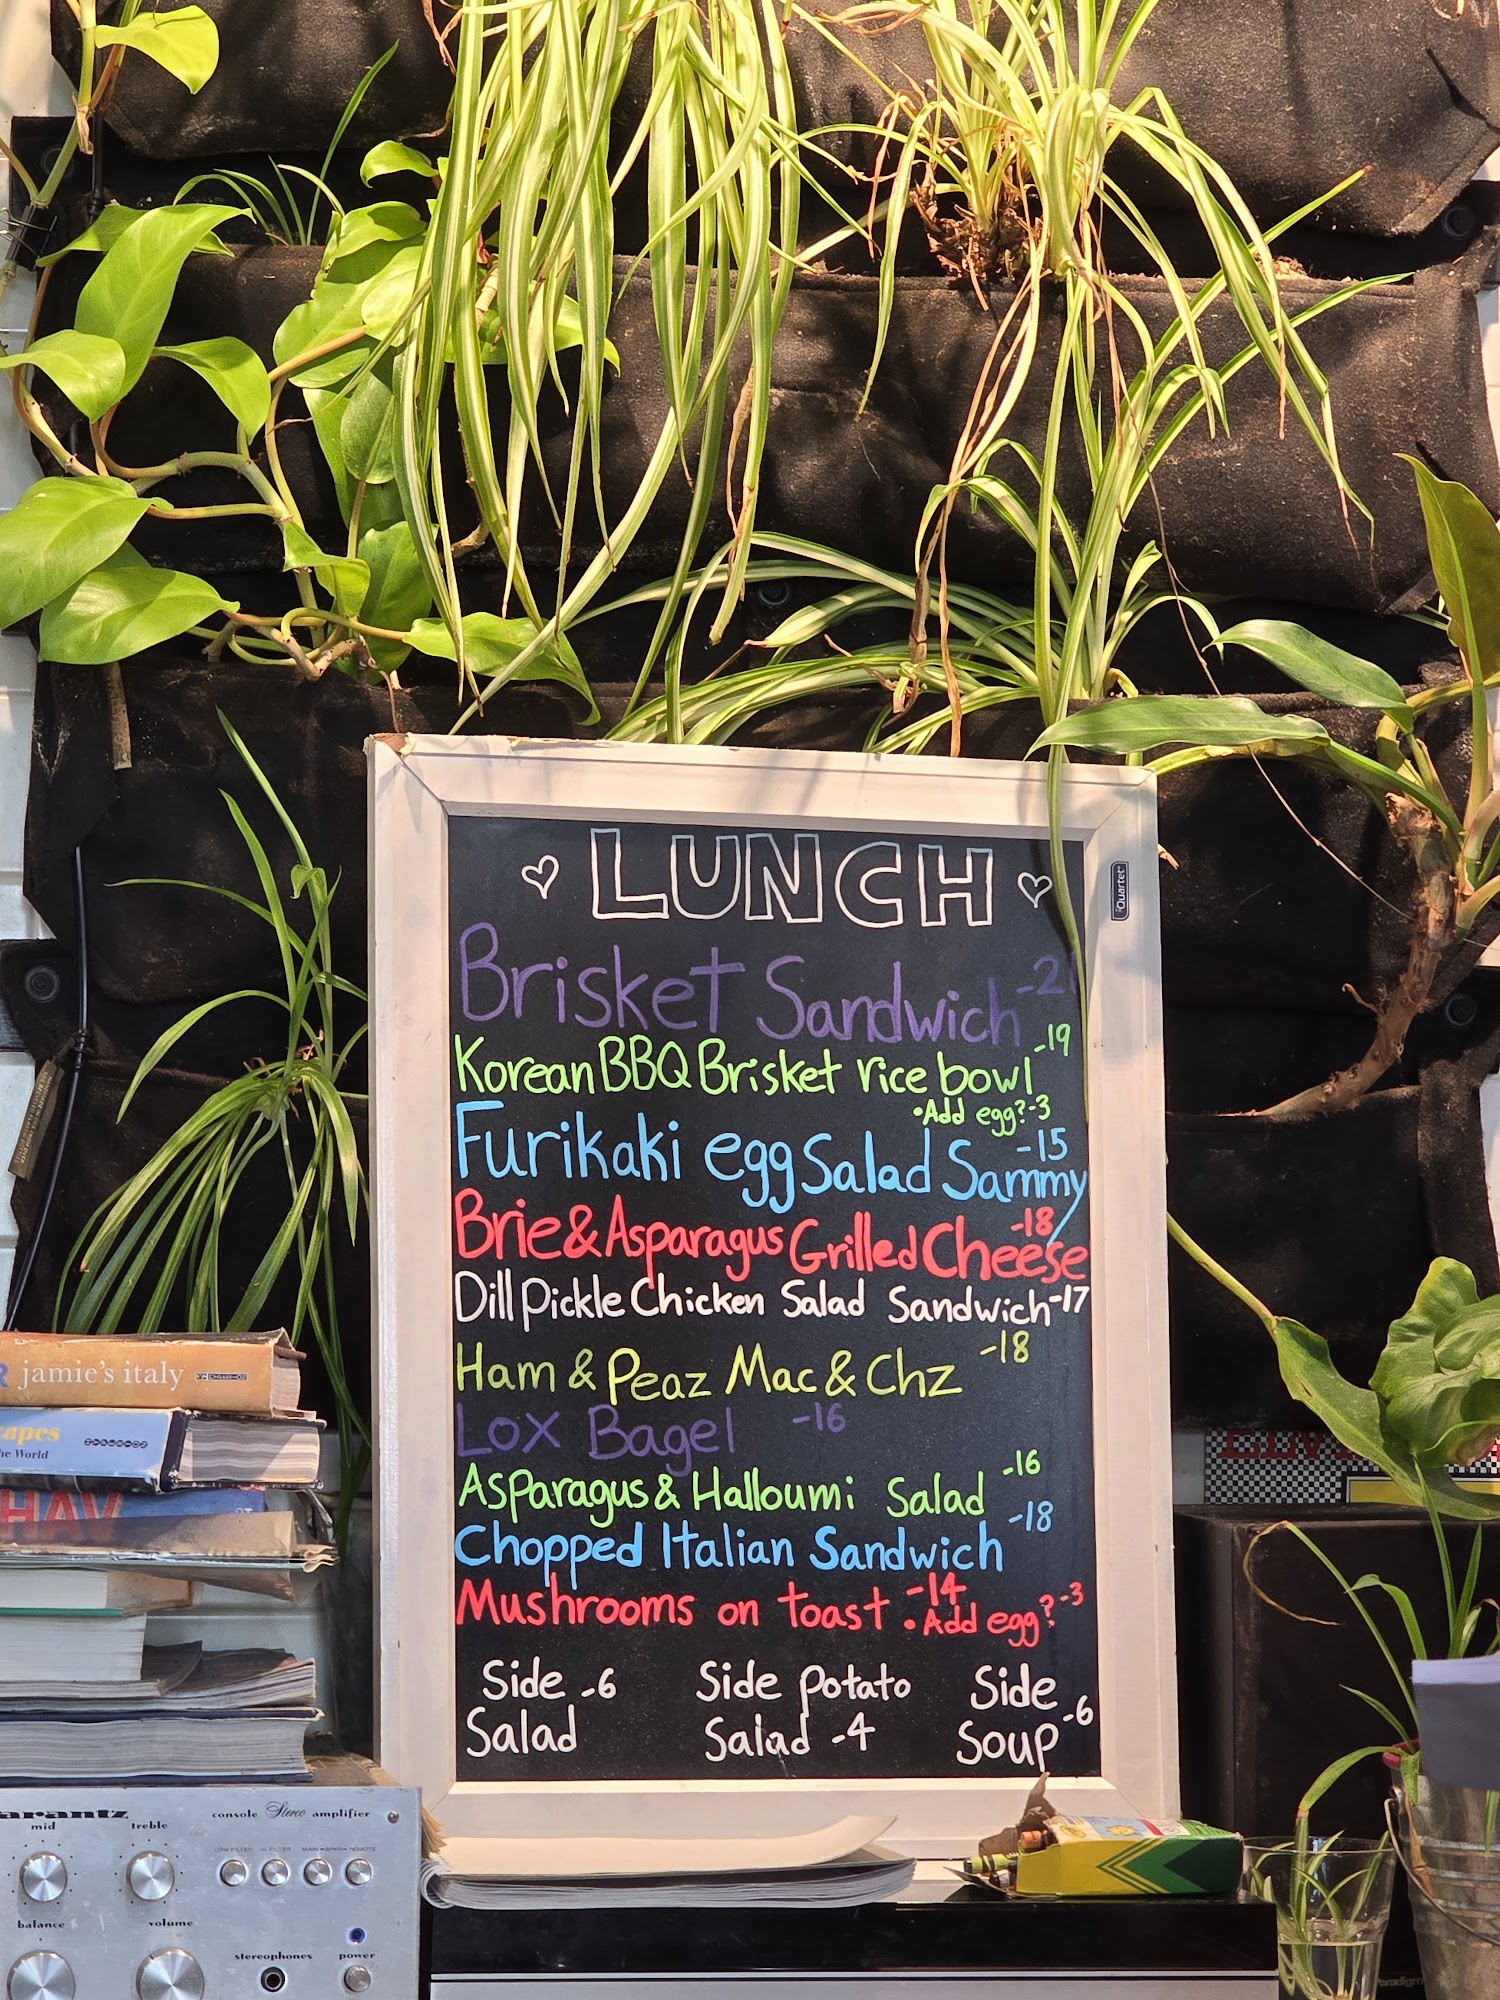 LUNCH
Quartet
Brisket Sandwich -21
Korean BBQ Brisket rice bowl -19
•Add egg? -3
Furikaki egg Salad Sammy -15
Brie & Asparagus Grilled Cheese -18
Dill Pickle Chicken Salad Sandwich -17
Ham & Peaz Mac & Chz -18
Lox Bagel -16
Asparagus & Halloumi Salad -16
Chopped Italian Sandwich -18
Mushrooms on toast -14
•Add egg? -3
Side Salad -6
Side potato Salad -4
Side Soup -6
jamie's italy
apes
he World
HAV
arantz
console Stereo amplifier
mid
treble
LOW FILTER
HI FILTER
MAIN-SPKR-REMOTE
balance
volume
stereophones
power
Paradigm